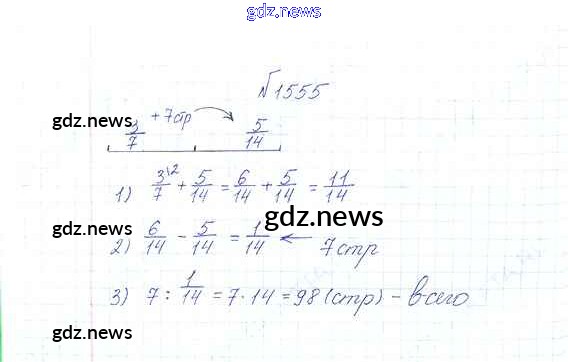 gdz.news
№1555
+7стр
gdz.news
3/7 5/14
1) 3\2/7 + 5/14 = 6/14 + 5/14 = 11/14
gdz.news
gdz.news
2) 6/14 - 5/14 = 1/14 ← 7стр
gdz.news
3) 7 : 1/14 = 7 · 14 = 98 (стр) - всего
gdz.news